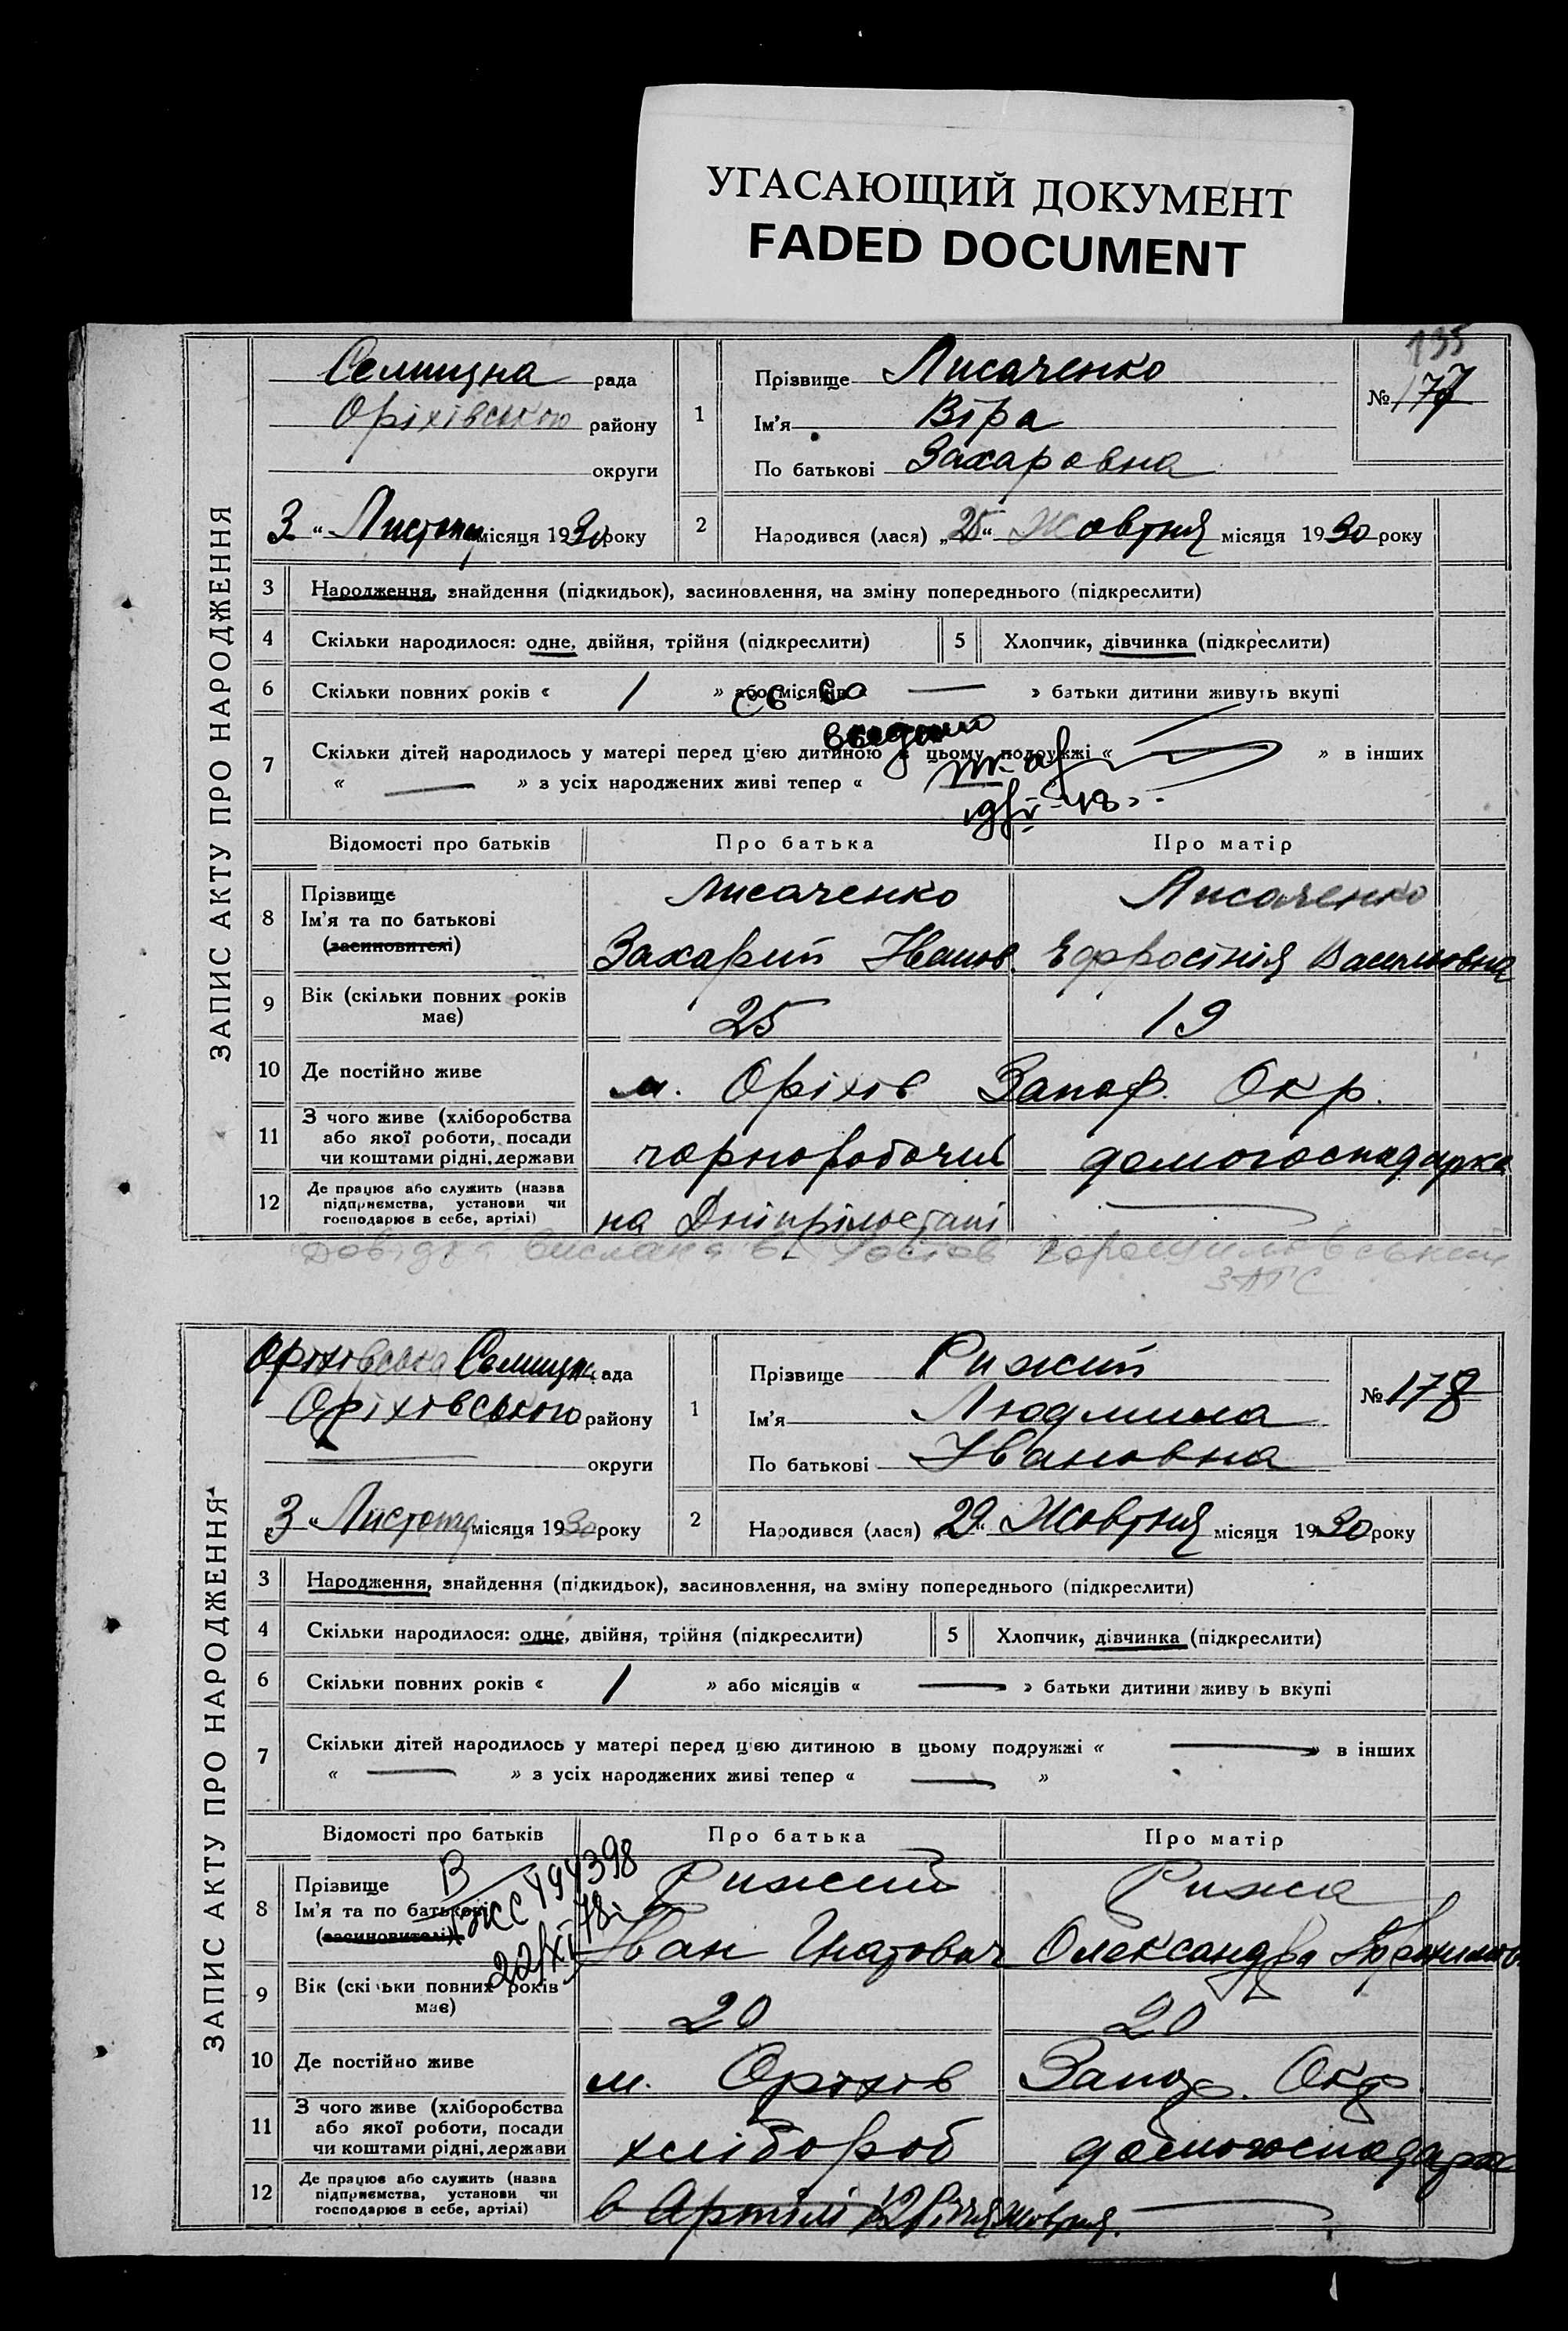 УГАСАЮЩИЙ ДОКУМЕНТ
FADED DOCUMENT
135
ЗАПИС АКТУ ПРО НАРОДЖЕННЯ
Селищна рада
Оріхівського району
округи
3 „ Листопад місяця 1930 року
1 Прізвище Лисаченко
Ім'я Віра
По батькові Захаровна
№ 177
2 Народився (лася) „25“ Жовтня місяця 1930 року
3 Народження, знайдення (підкидьок), засиновлення, на зміну попереднього (підкреслити)
4 Скільки народилося: одне, двійня, трійня (підкреслити) 5 Хлопчик, дівчинка (підкреслити)
6 Скільки повних років « 1 » або місяців « — » батьки дитини живуть вкупі
св-во
7 Скільки дітей народилось у матері перед цією дитиною в цьому подружжі « — » в інших
« — » з усіх народжених живі тепер «
Відомості про батьків Про батька Про матір
8 Прізвище Лисаченко Лисаченко
Ім'я та по батькові
(засиновителі) Захарий Іванов. Ефросінія Василовна
9 Вік (скільки повних років має) 25 19
10 Де постійно живе м. Оріхів Запор. Окр.
11 З чого живе (хліборобства
або якої роботи, посади
чи коштами рідні, держави чорноробочий домогосподарка
12 Де працює або служить (назва
підприємства, установи чи
господарює в себе, артілі) на Дніпрільстані —
Довідка вислана в Ростов Ворошиловський
ЗАГС
ЗАПИС АКТУ ПРО НАРОДЖЕННЯ
Оріхівська Селищна рада
Оріхівського району
округи
„3“ Листопад місяця 1930 року
1 Прізвище Рижий
Ім'я Людмила
По батькові Івановна
№ 178
2 Народився (лася) „29“ Жовтня місяця 1930 року
3 Народження, знайдення (підкидьок), засиновлення, на зміну попереднього (підкреслити)
4 Скільки народилося: одне, двійня, трійня (підкреслити) 5 Хлопчик, дівчинка (підкреслити)
6 Скільки повних років « 1 » або місяців « — » батьки дитини живу ь вкупі
7 Скільки дітей народилось у матері перед цією дитиною в цьому подружжі « — » в інших
« — » з усіх народжених живі тепер « — »
Відомості про батьків Про батька Про матір
8 Прізвище Рижий Рижа
Ім'я та по батькові
(засиновителі) Іван Гнатович Олександра
9 Вік (скільки повних років має) 20 20
10 Де постійно живе м. Оріхів Запор. Окр
11 З чого живе (хліборобства
або якої роботи, посади
чи коштами рідні, держави хлібороб домогосподарка
12 Де працює або служить (назва
підприємства, установи чи
господарює в себе, артілі) в Артілі 12 Річчя Жовтня. —